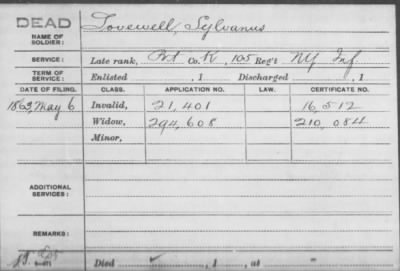 DEAD Lovewell, Sylvanus
NAME OF SOLDIER:
SERVICE: Late rank, Pvt Co. K, 105 Reg't NY Inf
TERM OF SERVICE: Enlisted , 1 Discharged , 1
DATE OF FILING. CLASS. APPLICATION NO. LAW. CERTIFICATE NO.
1863, May 6 Invalid, 21,401 16,512
Widow, 294,608 210,084
Minor,
ADDITIONAL SERVICES:
REMARKS:
Died , 1 , at "